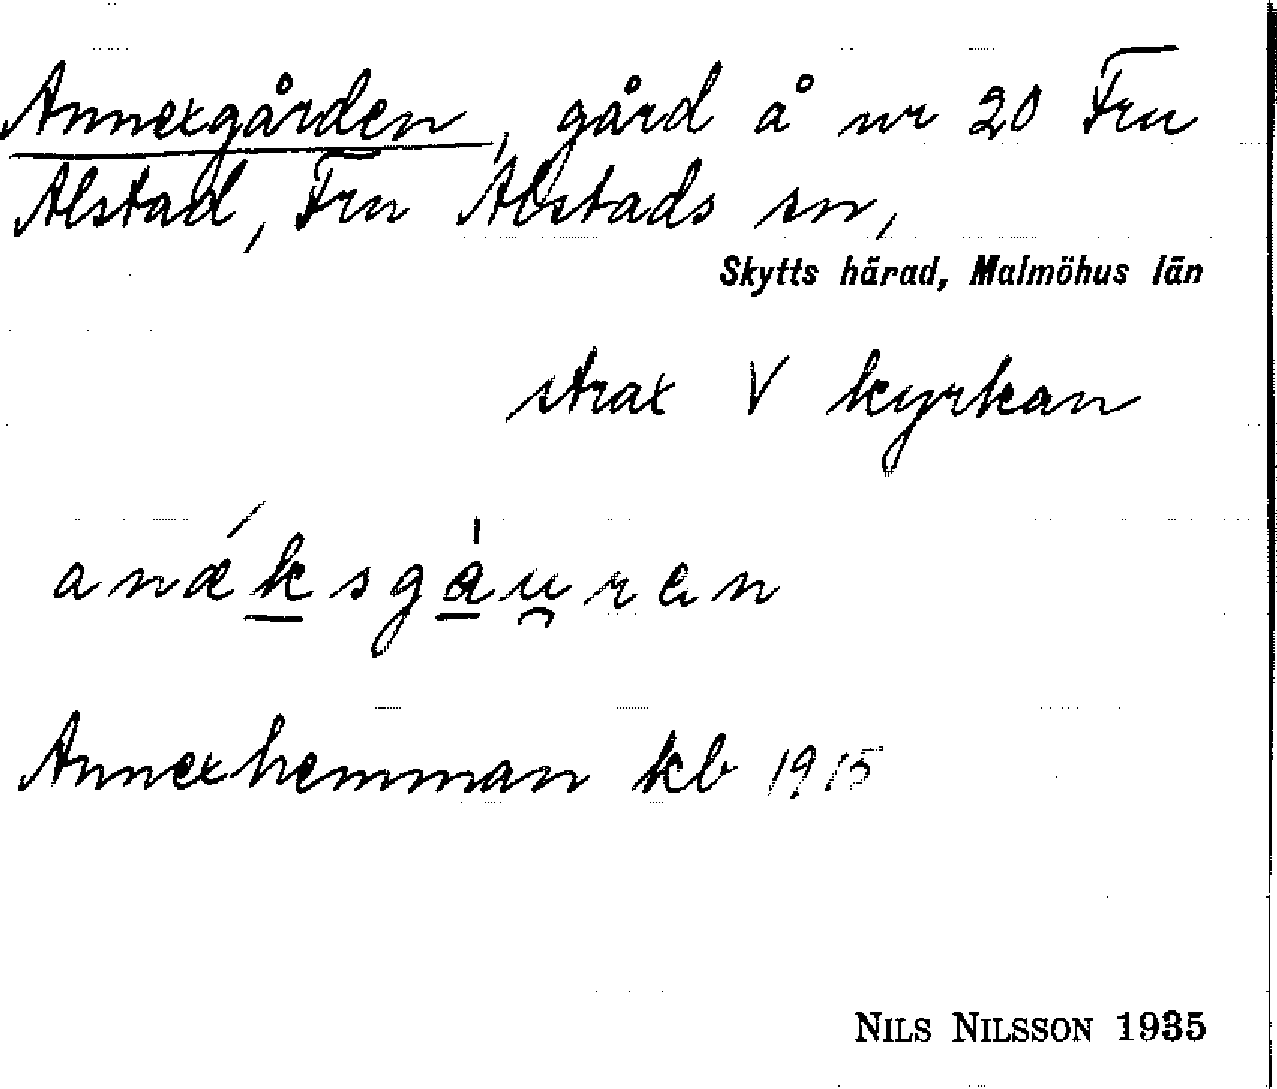 Annexgården, gård å nr 20 Fru
Alstad, Fru Alstads sn,
Skytts härad, Malmöhus län
strax V kyrkan
anǽksgáu̯rɛn
Annexhemman kb 1915
NILS NILSSON 1935